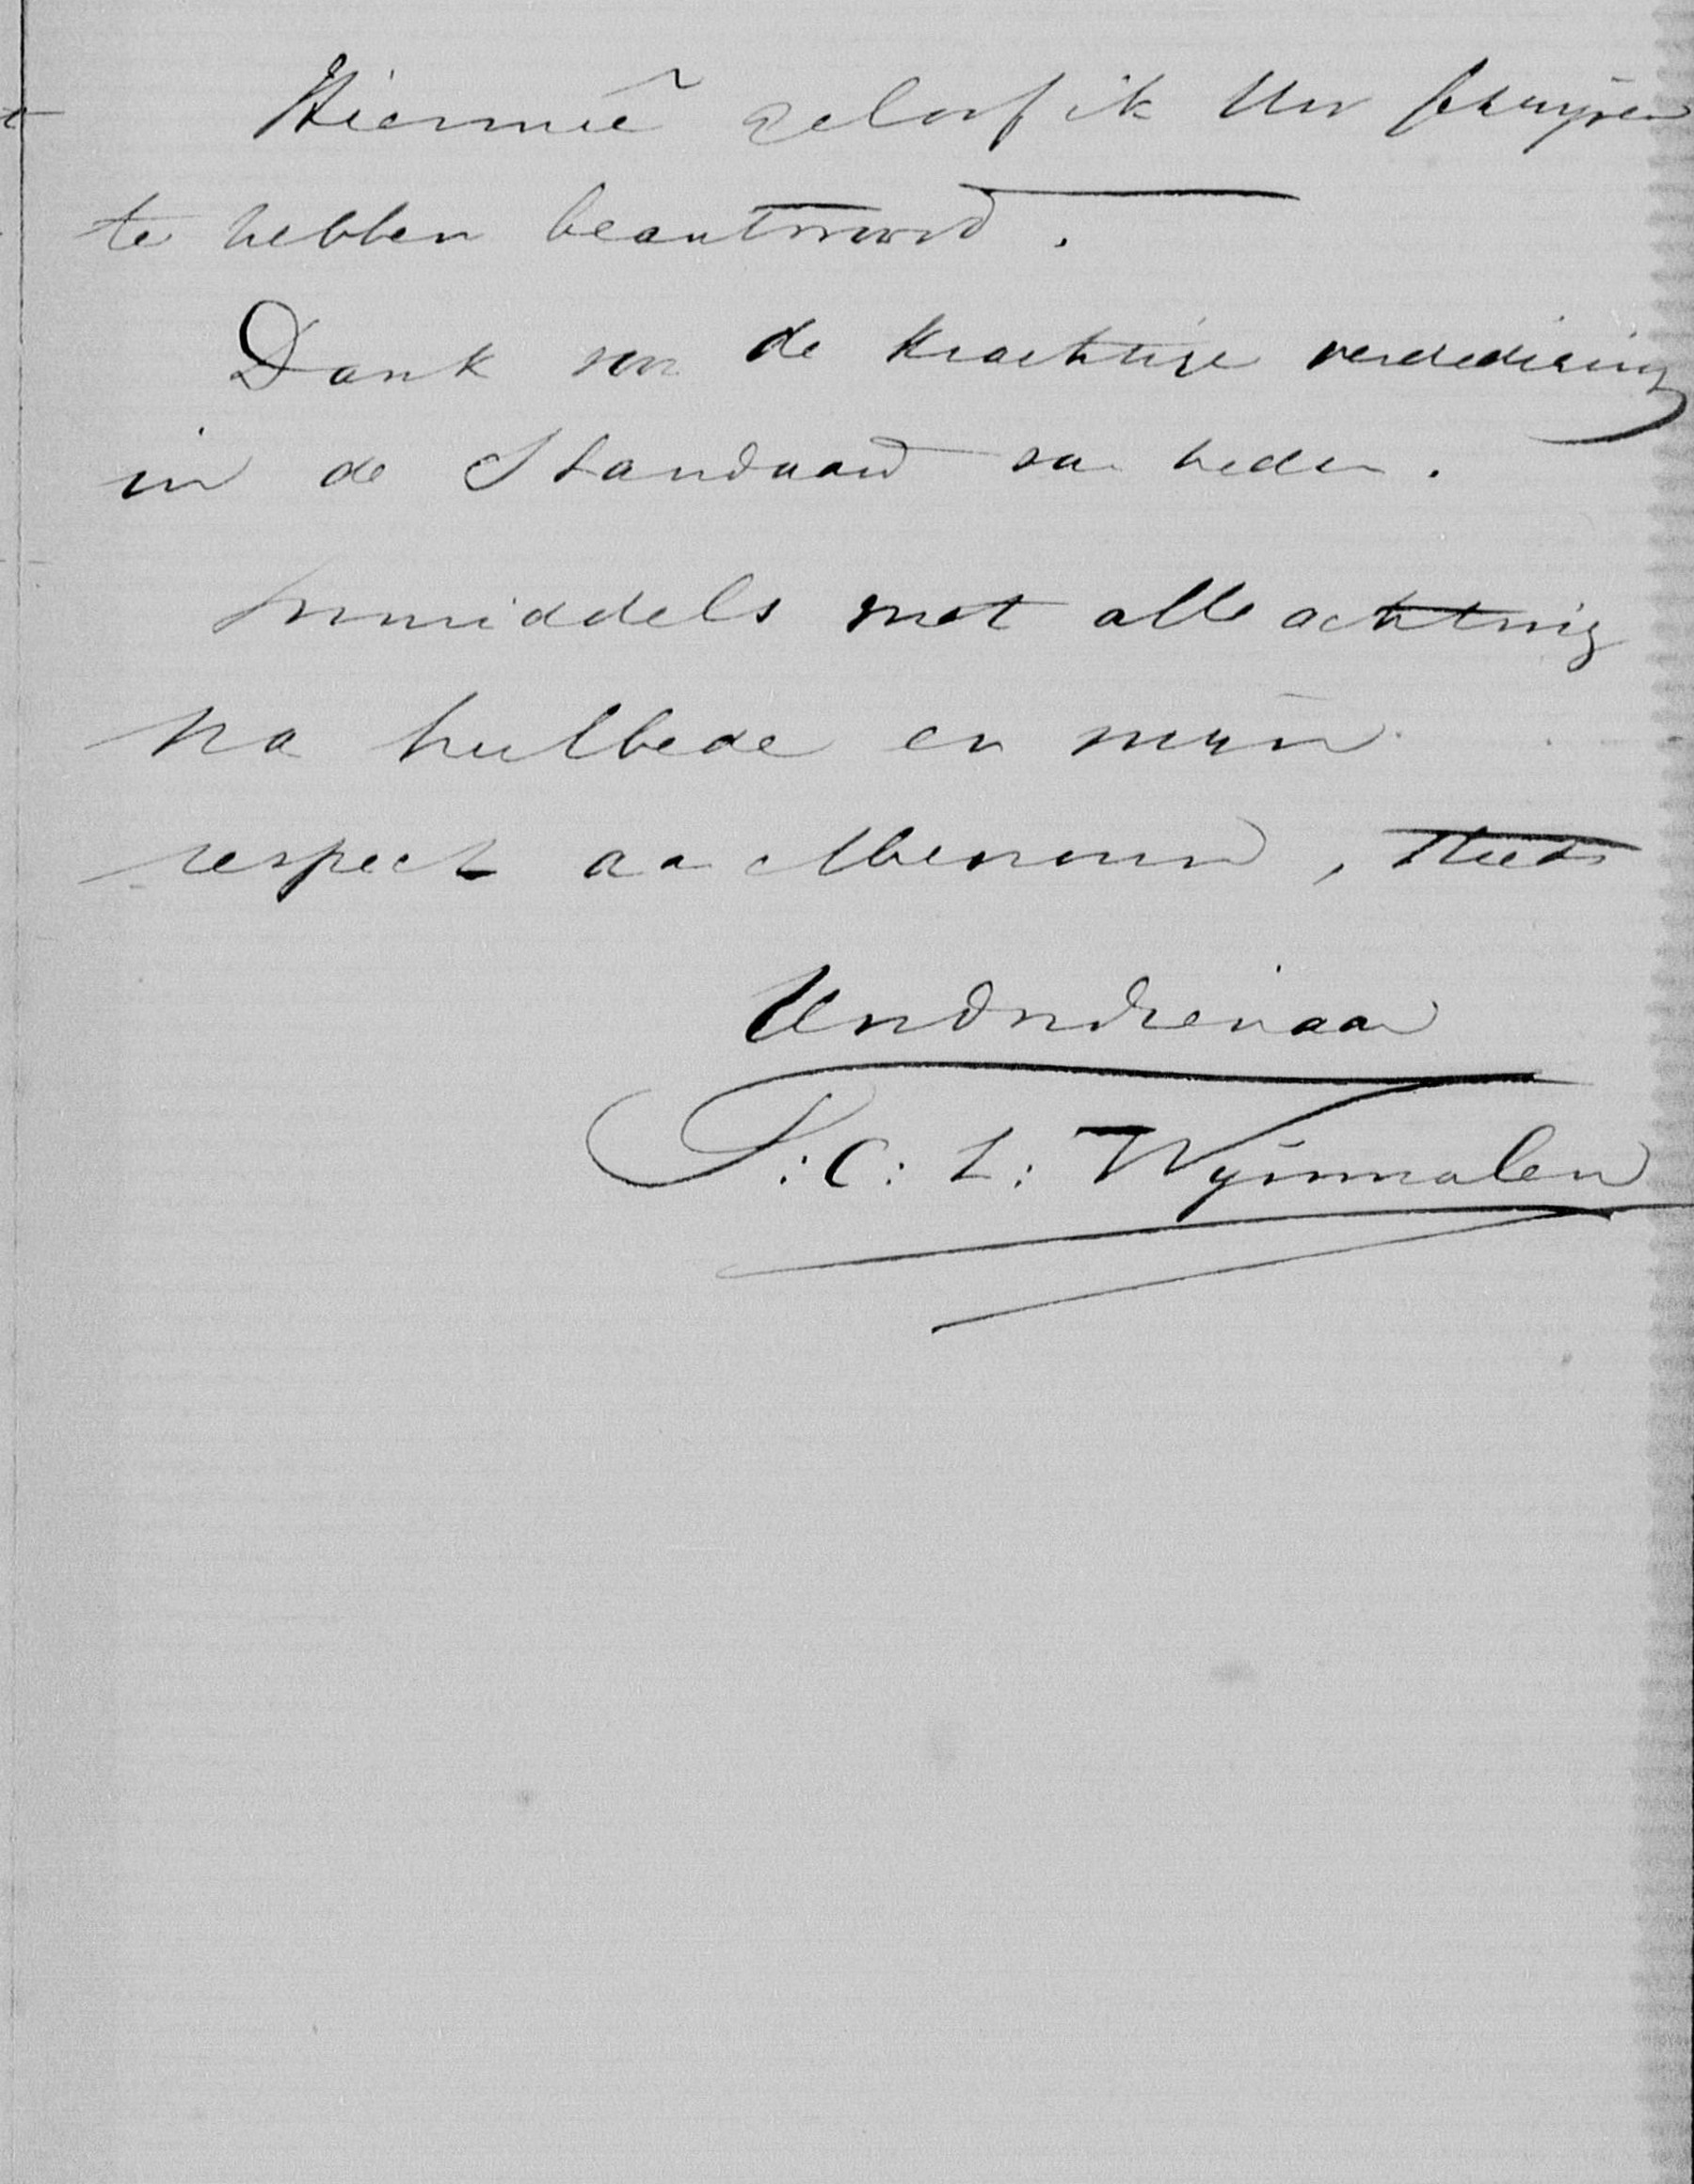 Hiermeê geloof ik Uw schrijven
te hebben beantwoord.
Dank voor de krachtige verdediging
in de Standaard van heden.
Inmiddels met alle achting
na heilbede en mijn
respect aan Mevrouw, steeds
Uw dw dienaar
T: C: L: Wijnmalen